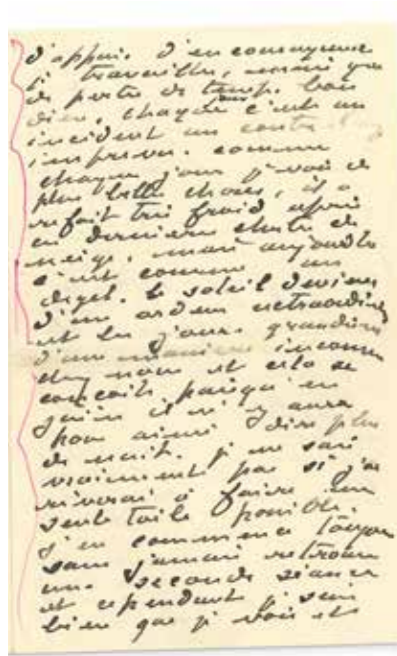 d'appui. J'en courageuse
travailler, mais que
de perte de temps. bon
dieu, chaque jour c'est un
incident un contre
imprévu. comme
chaque jour je vois de
plus belles choses, il a
refait très froid après
ces dernières chutes de
neige, mais aujourd'hui
c'est comme un
dégel. le soleil devient
d'un ardeur extraordinaire
et les jours grandissent
d'une manière inconnue
chez nous et cela se
conçoit puisqu'en
juin il n'y aura
pour ainsi dire plus
de nuit. je ne sais
vraiment pas si j'
arriverai à faire une
seule toile possible.
j'en commence toujours
sans jamais retrouver
une seconde séance
et cependant je sens
bien que je vois et